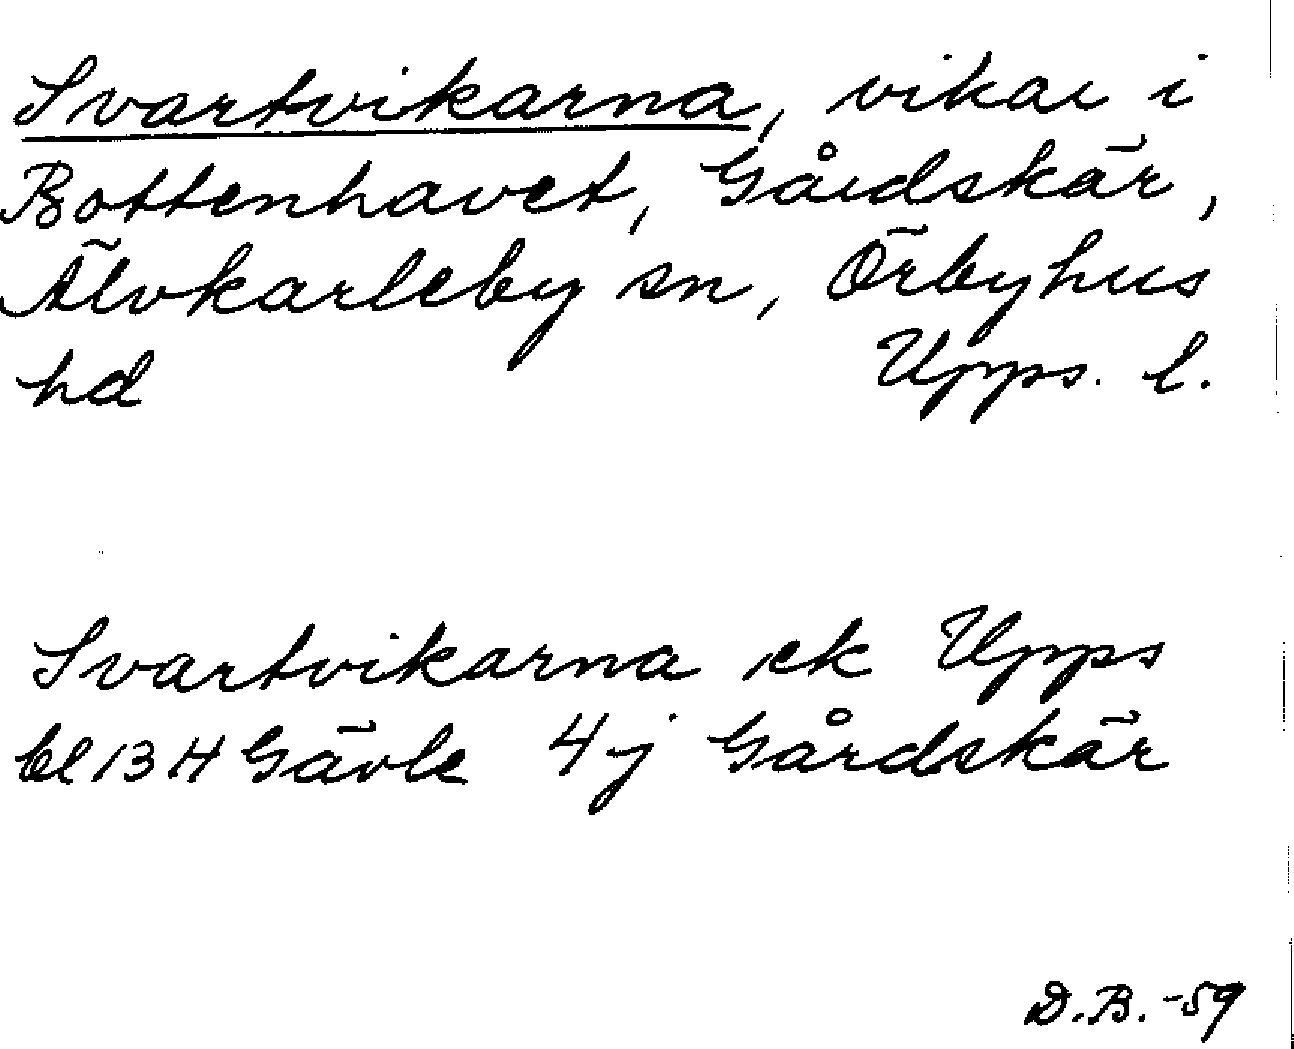 Svartvikarna, vikar i
Bottenhavet, Gårdskär,
Älvkarleby sn, Örbyhus
hd Upps. l.
Svartvikarna ek Upps
bl 13 H Gävle 4 j Gårdskär
D.B. -59